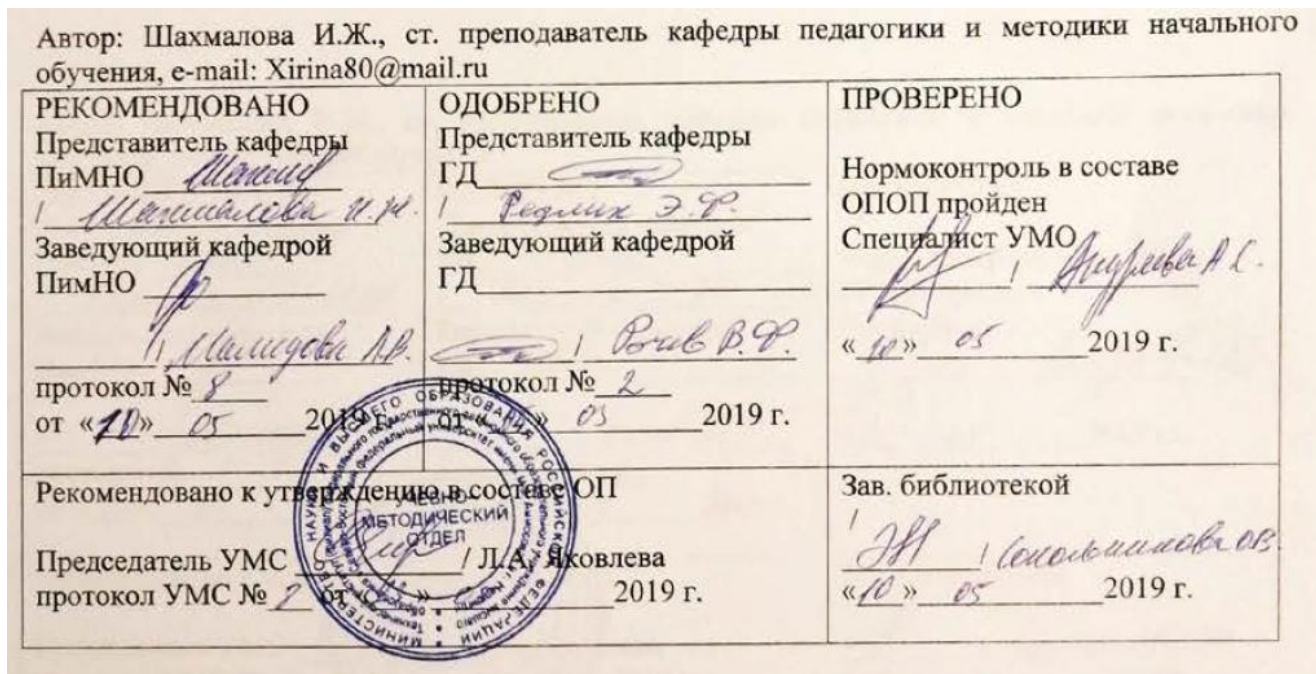 Автор: Шахмалова И.Ж., ст. преподаватель кафедры педагогики и методики начального
обучения, e-mail: Xirina80@mail.ru
РЕКОМЕНДОВАНО
Представитель кафедры
ПиМНО
/ Шахмалова И.Ж.
Заведующий кафедрой
ПимНО
/ Мамедова Л.В.
протокол № 8
от «10» 05 2019 г.
ОДОБРЕНО
Представитель кафедры
ГД
/ Редлих Э.Ф.
Заведующий кафедрой
ГД
/ Рочев В.Ф.
протокол № 2
от « » 03 2019 г.
ПРОВЕРЕНО
Нормоконтроль в составе
ОПОП пройден
Специалист УМО
/ А.С.
«10» 05 2019 г.
Рекомендовано к утверждению в составе ОП
Председатель УМС / Л.А. Яковлева
протокол УМС № 2 от « » 2019 г.
Зав. библиотекой
/
/ Сокольникова О.В.
«10» 05 2019 г.
УЧЕБНО-
МЕТОДИЧЕСКИЙ
ОТДЕЛ
МИНИСТЕРСТВО НАУКИ И ВЫСШЕГО ОБРАЗОВАНИЯ РОССИЙСКОЙ ФЕДЕРАЦИИ